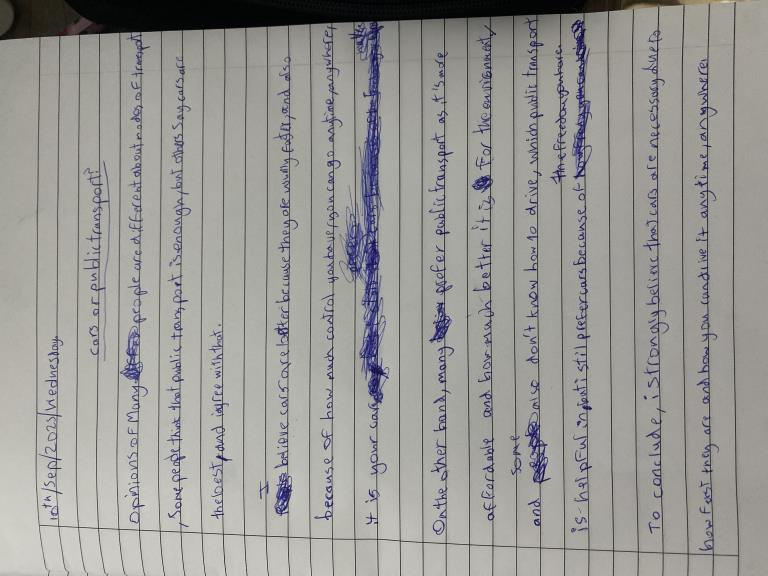 10th/Sep/2025/Wednesday
cars or public transport?
Opinions of Many people are different about modes of transport
, Some people think that public transport is enough, but others say cars are
the best, and i agree with that.
I believe cars are better because they are usually faster, and also
because of how much control you have, you can go anytime, anywhere,
it is your car
On the other hand, many prefer public transport as it's more
affordable and how much better it is for the environment,
and some also don't know how to drive, which public transport
is helpful in, but i still prefer cars because of the freedom you have
To conclude, i strongly believe that cars are necessary due to
how fast they are and how you can drive it anytime, anywhere.